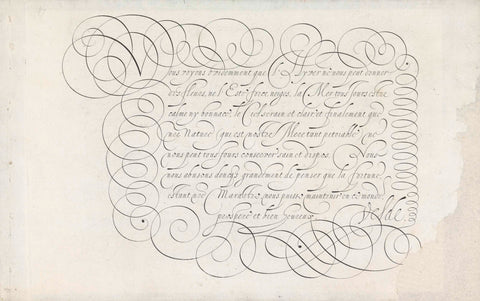 Vous voyons evidemment que l'Hyver ne nous peut donner
des fleurs, ne l'Esté force neiges, la Mer tousjours estre
calme ny bonnace, le Ciel serain et clair et finalement que
nostre Mere tout pitoiable ne
nous peut tousjours conserver sain et dispos. Nous
nous abusons doncq grandement de penser que la fortune
estant une Marastre nous puisse maintenir en ce monde
prospere et bien heureux.
Velde